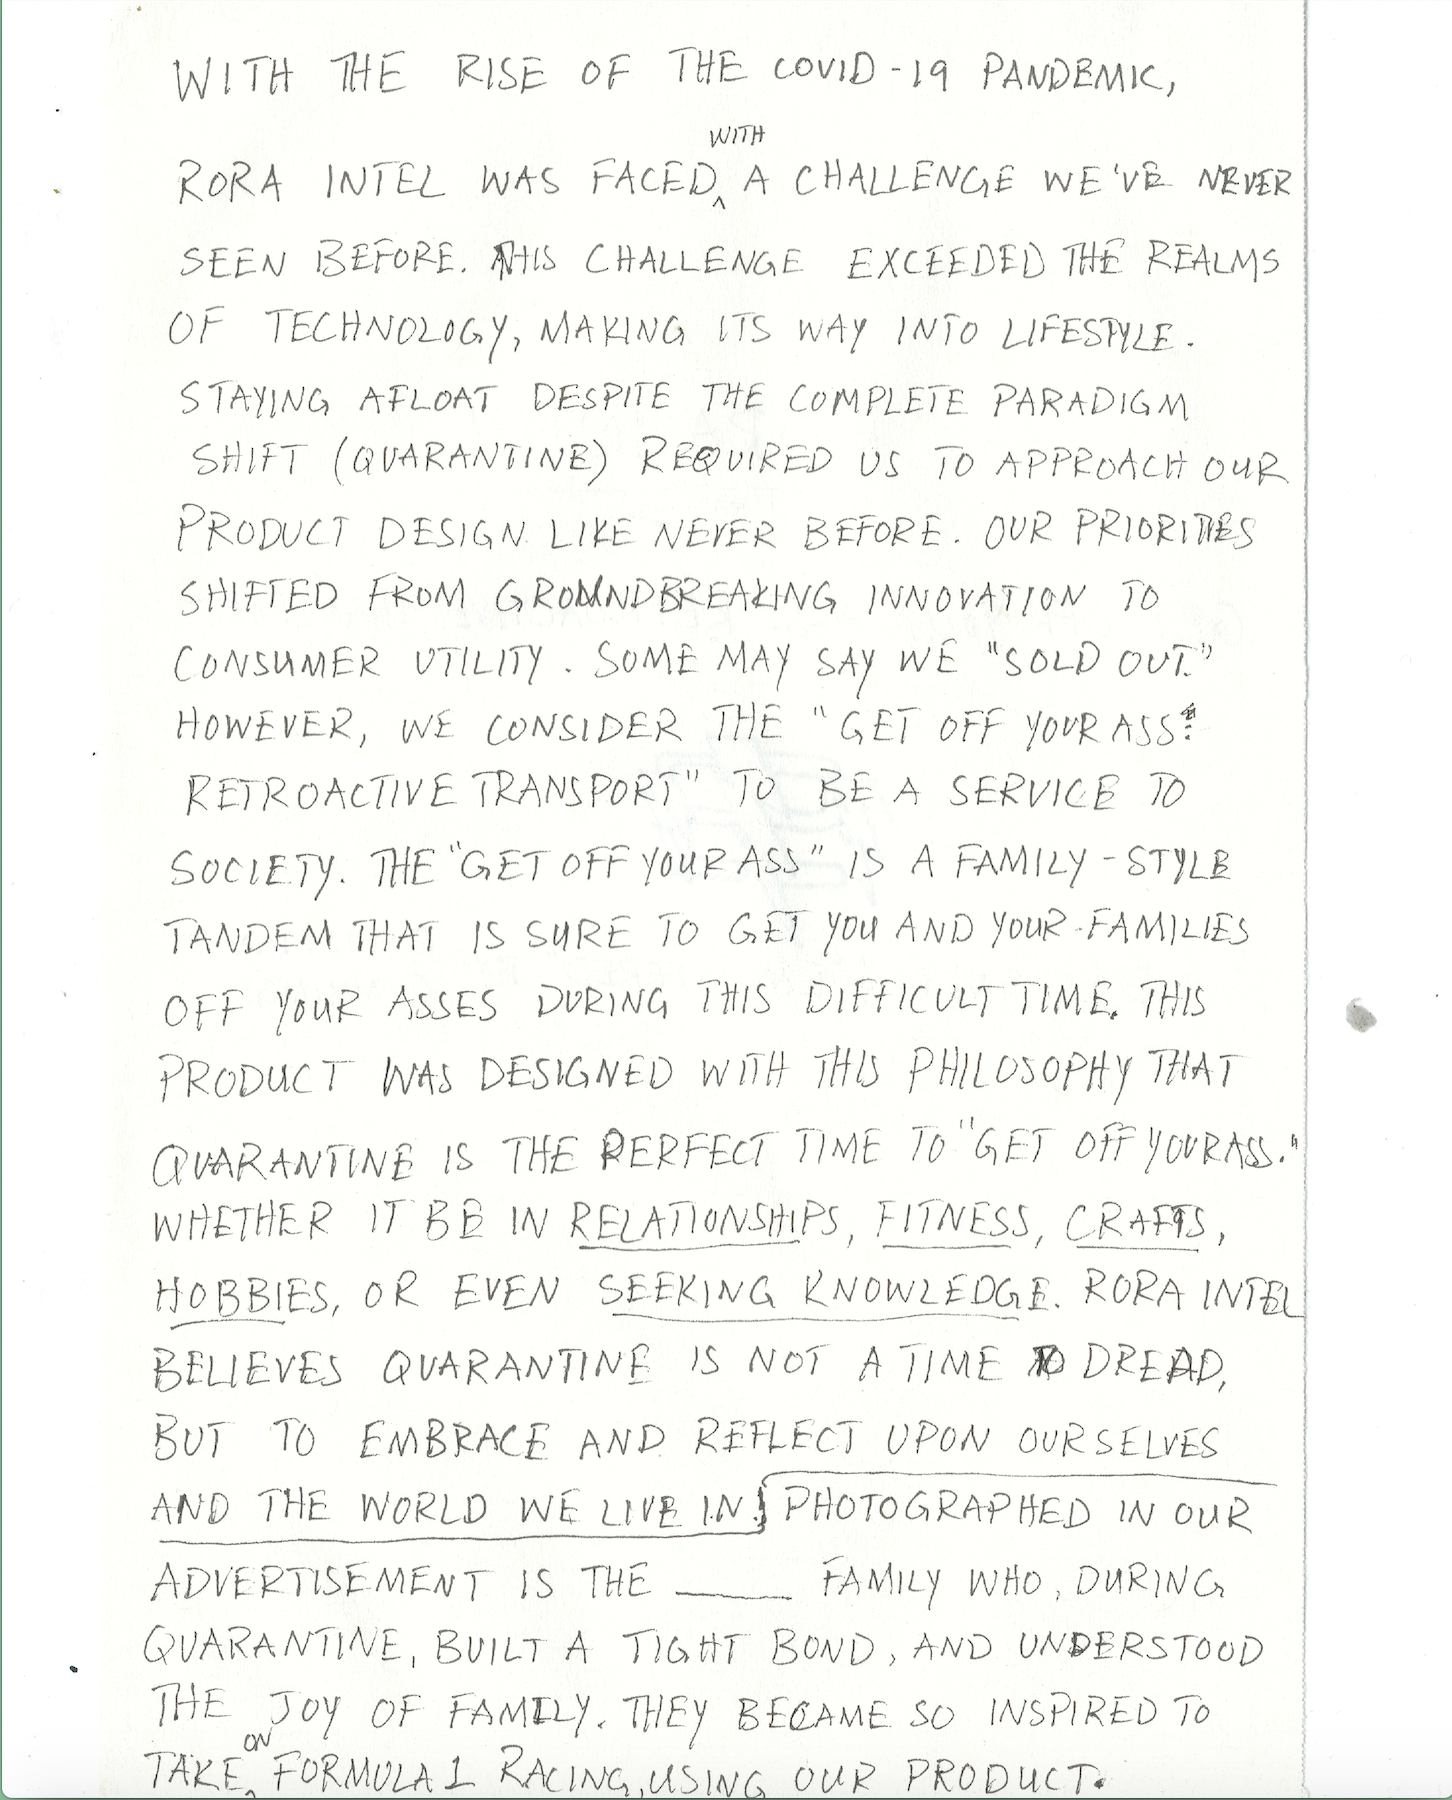 WITH THE RISE OF THE COVID-19 PANDEMIC,
RORA INTEL WAS FACED WITH A CHALLENGE WE'VE NEVER
SEEN BEFORE. THIS CHALLENGE EXCEEDED THE REALMS
OF TECHNOLOGY, MAKING ITS WAY INTO LIFESTYLE.
STAYING AFLOAT DESPITE THE COMPLETE PARADIGM
SHIFT (QUARANTINE) REQUIRED US TO APPROACH OUR
PRODUCT DESIGN LIKE NEVER BEFORE. OUR PRIORITIES
SHIFTED FROM GROUNDBREAKING INNOVATION TO
CONSUMER UTILITY. SOME MAY SAY WE "SOLD OUT."
HOWEVER, WE CONSIDER THE "GET OFF YOUR ASS:
RETROACTIVE TRANSPORT" TO BE A SERVICE TO
SOCIETY. THE "GET OFF YOUR ASS" IS A FAMILY-STYLE
TANDEM THAT IS SURE TO GET YOU AND YOUR FAMILIES
OFF YOUR ASSES DURING THIS DIFFICULT TIME. THIS
PRODUCT WAS DESIGNED WITH THIS PHILOSOPHY THAT
QUARANTINE IS THE PERFECT TIME TO "GET OFF YOUR ASS."
WHETHER IT BE IN RELATIONSHIPS, FITNESS, CRAFTS,
HOBBIES, OR EVEN SEEKING KNOWLEDGE. RORA INTEL
BELIEVES QUARANTINE IS NOT A TIME TO DREAD,
BUT TO EMBRACE AND REFLECT UPON OURSELVES
AND THE WORLD WE LIVE IN. PHOTOGRAPHED IN OUR
ADVERTISEMENT IS THE ____ FAMILY WHO, DURING
QUARANTINE, BUILT A TIGHT BOND, AND UNDERSTOOD
THE JOY OF FAMILY. THEY BECAME SO INSPIRED TO
TAKE ON FORMULA 1 RACING, USING OUR PRODUCT.